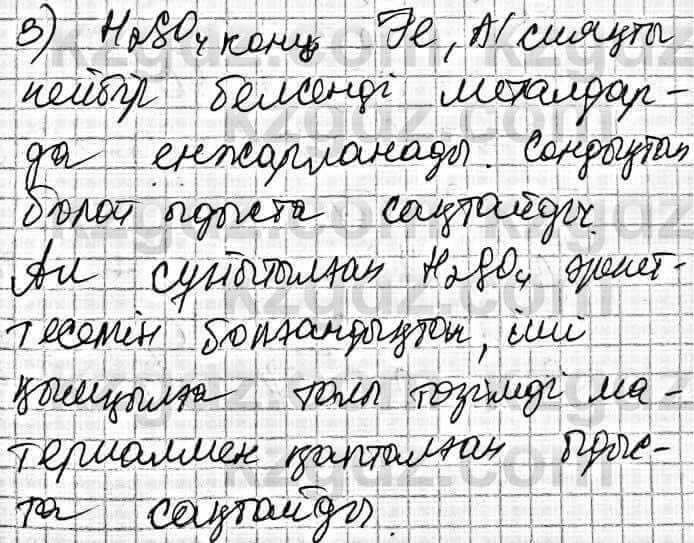 3) H₂SO₄ конц Fe, Al сияқты
кейбір белсенді металдар-
да енжарланады. Сондықтан
болат ыдыста сақтайды.
Ал сұйытылған H₂SO₄ әрекет-
тесетін болғандықтан, іші
қышқылға толы төзімді ма-
териалмен қапталған ыдыс-
та сақтайды.